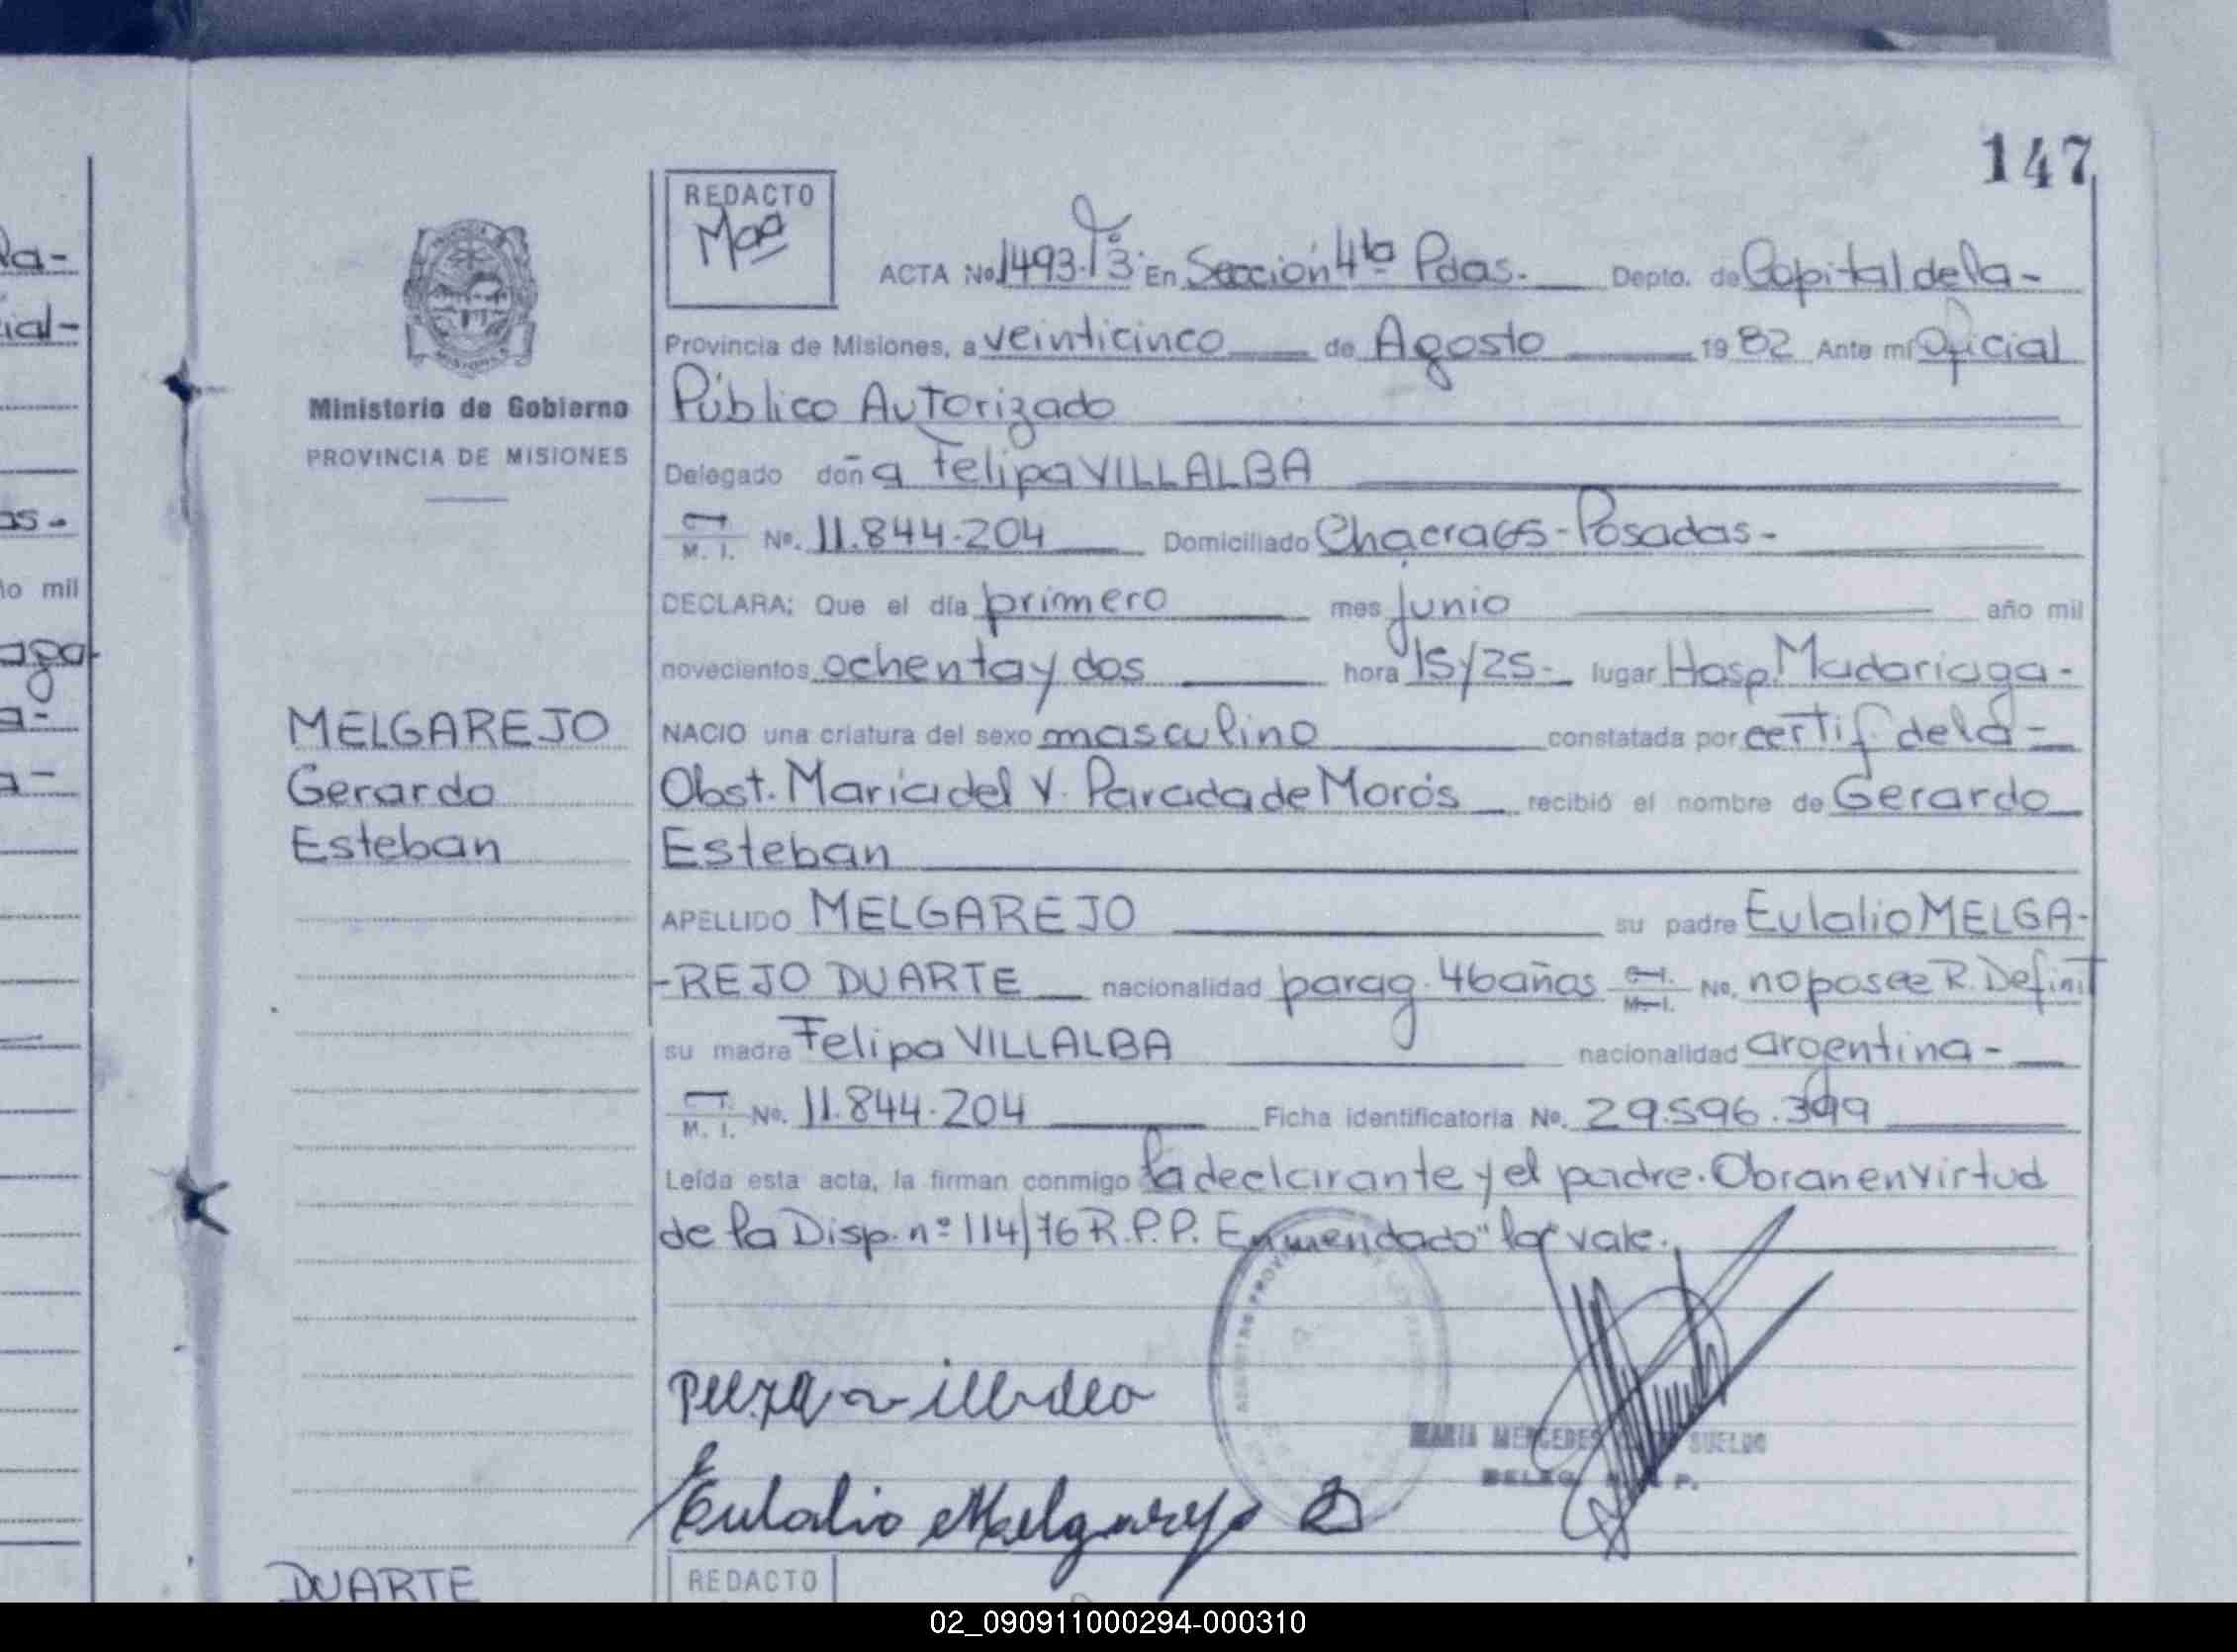 147
REDACTO
Maa
ACTA No. 1493. Tº 3. En Sección 4ta Pdas. Depto. de Capital de la-
Provincia de Misiones, a veinticinco de Agosto 1982 Ante mí Oficial
Público Autorizado
Delegado doña Felipa VILLALBA
M. I. Nº. 11.844.204 Domiciliado Chacra 65-Posadas-
DECLARA: Que el día primero mes junio año mil
novecientos ochenta y dos hora 15/25- lugar Hosp. Madariaga-
NACIO una criatura del sexo masculino constatada por certif. de la-
Obst. Maria del V. Parada de Morós recibió el nombre de Gerardo
Esteban
APELLIDO MELGAREJO su padre Eulalio MELGA-
-REJO DUARTE nacionalidad parag. 46 años M. I. No. no posee R. Definit
su madre Felipa VILLALBA nacionalidad argentina-
M. I. Nº. 11.844.204 Ficha identificatoria Nº. 29.596.399
Leída esta acta, la firman conmigo la declarante y el padre. Obran en virtud
de la Disp. nº 114/76 R.P.P. Enmendado "la" vale.
Eulalio Melgarejo D
MARIA MERCEDES SUELDO
DELEG. P.
Ministerio de Gobierno
PROVINCIA DE MISIONES
MELGAREJO
Gerardo
Esteban
DUARTE
REDACTO
la-
cial-
as-
ño mil
aga-
a-
a-
02_090911000294-000310